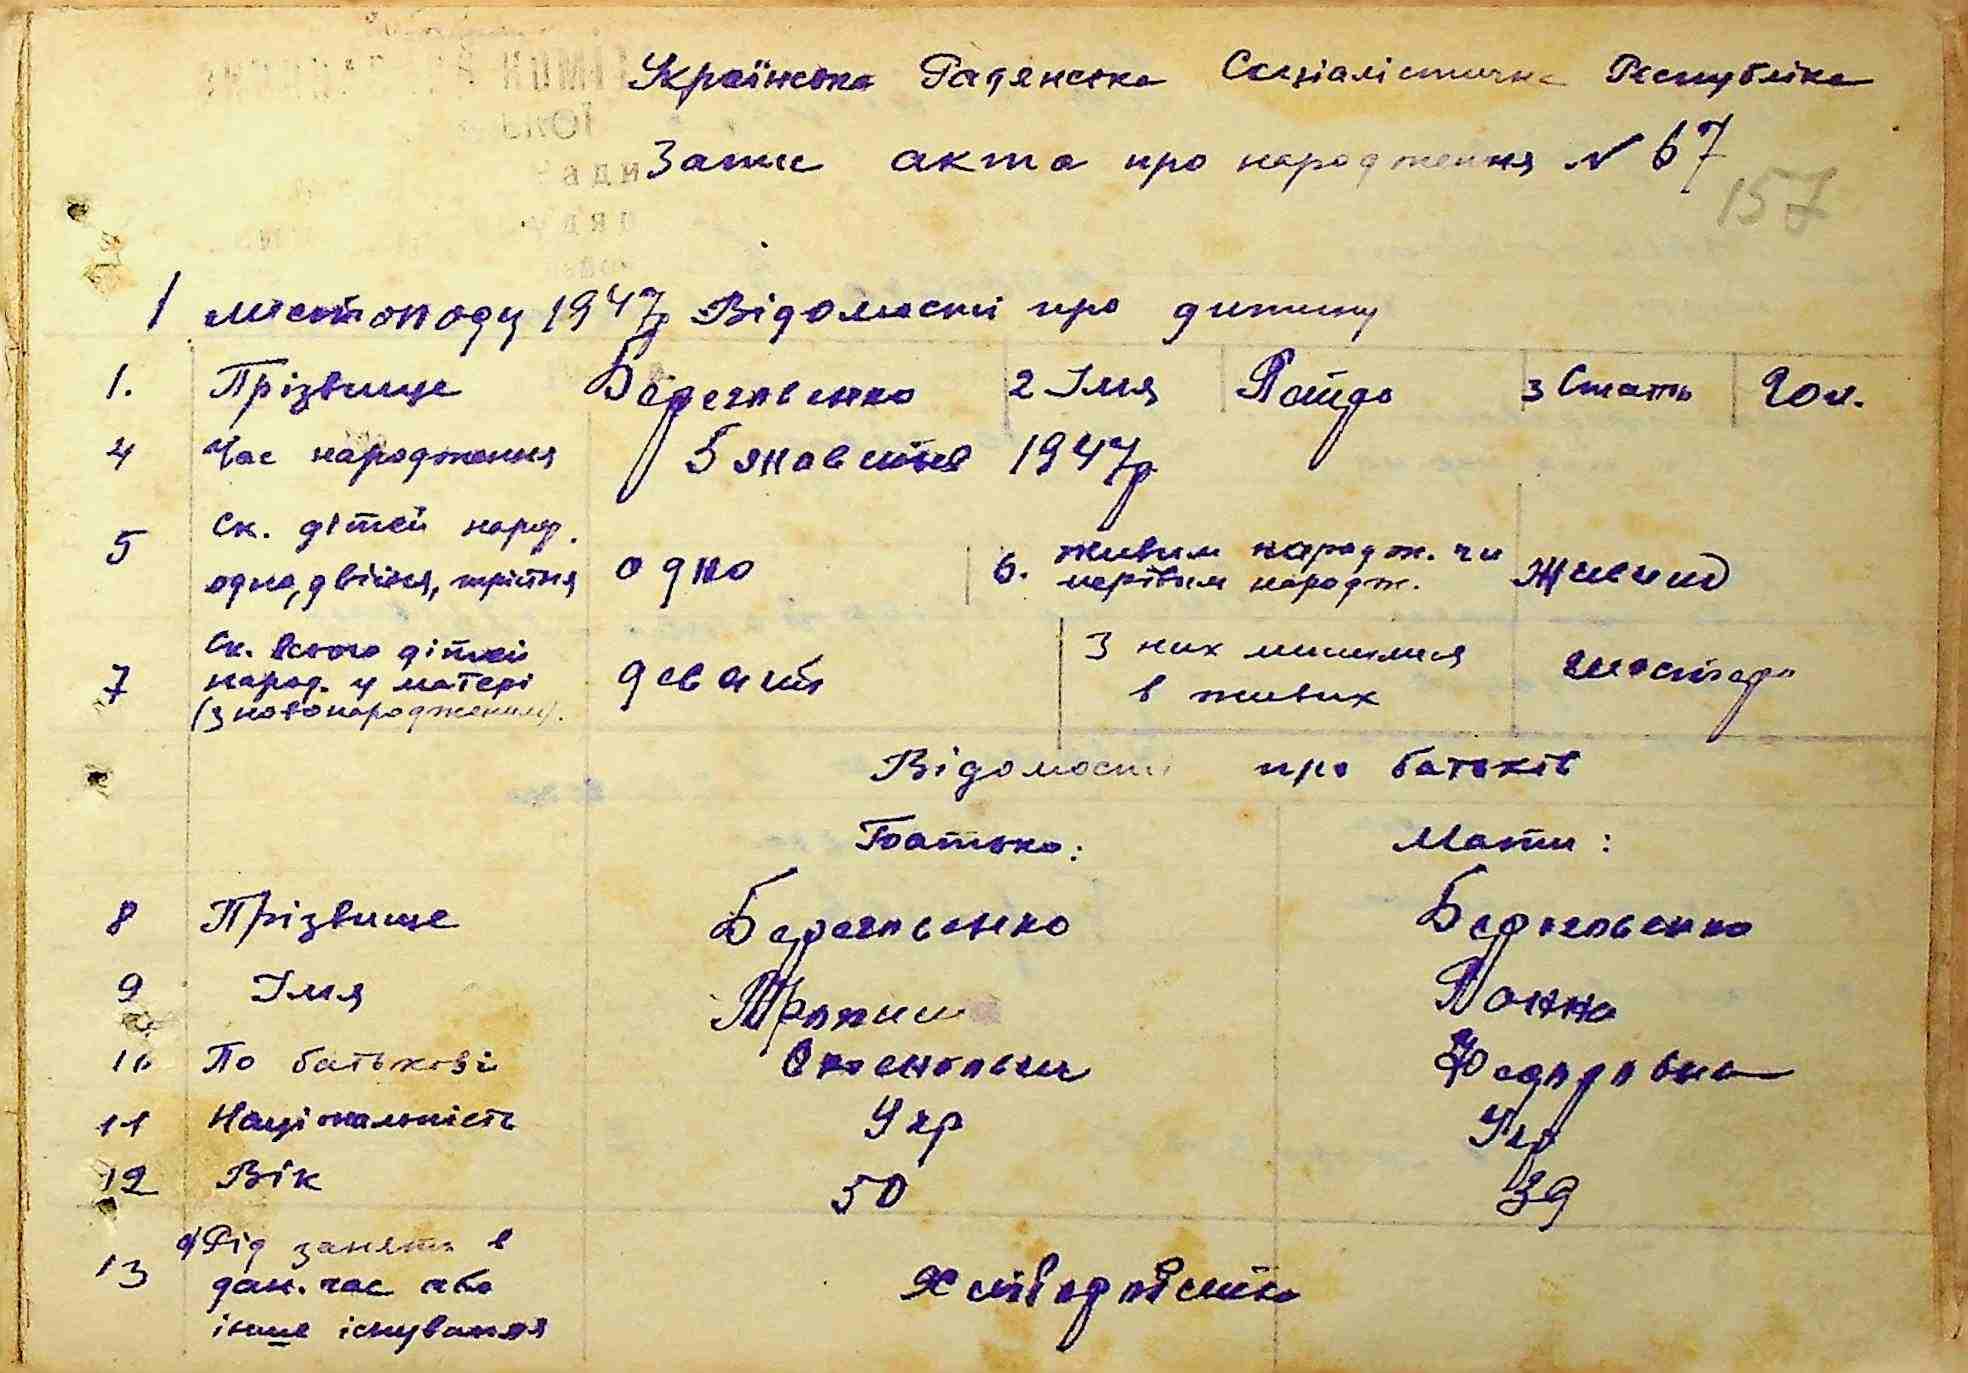 Українська Радянська Соціалістична Республіка
Запис акта про народження N 67
157
1 листопаду 1947р Відомості про дитину
1. Прізвище Береговенко 2 Імя 3 Стать чол.
4 Час народження 5 жовтня 1947р
5 Ск. дітей народ. одно, двійня, трійня одно 6. живим народж. чи мертвим народж. живим
7 Ск. всього дітей народ. у матері (з новонародженим). девять З них лишилися в живих шостеро
Відомості про батьків
Батько: Мати:
8 Прізвище Береговенко Береговенко
9 Імя Ганна
10 По батькові Федоровна
11 Національність Укр Укр
12 Вік 50 39
13 а) Рід занять в дан. час або інше існування Хлібробство